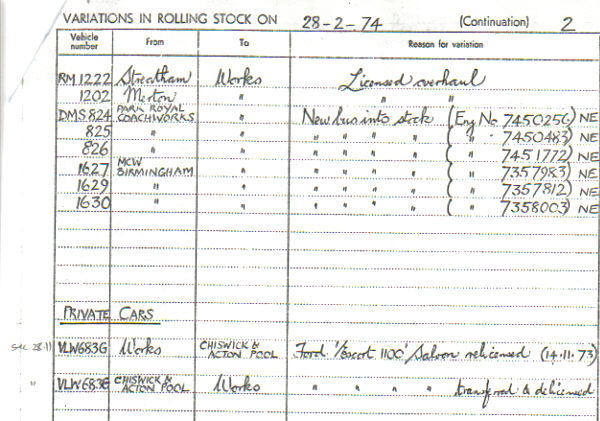 VARIATIONS IN ROLLING STOCK ON 28-2-74 (Continuation) 2
Vehicle number From To Reason for variation
RM 1222 Streatham Works Licensed overhaul
1202 Merton " " "
DMS 824 PARK ROYAL COACHWORKS " New bus into stock (Eng No 7450256) NE
825 " " " " " " ( " " 7450483) NE
826 " " " " " " ( " 7451772) NE
1627 MCW BIRMINGHAM " " " " " ( " 7357983) NE
1629 " " " " " " ( " 7357812) NE
1630 " " " " " " ( " 7358003) NE
PRIVATE CARS
SEC 28.11 VLW683G Works CHISWICK & ACTON POOL Ford 'Escort 1100' Saloon relicensed (14.11.73)
" VLW683G CHISWICK & ACTON POOL Works " " " " transferred & delicensed